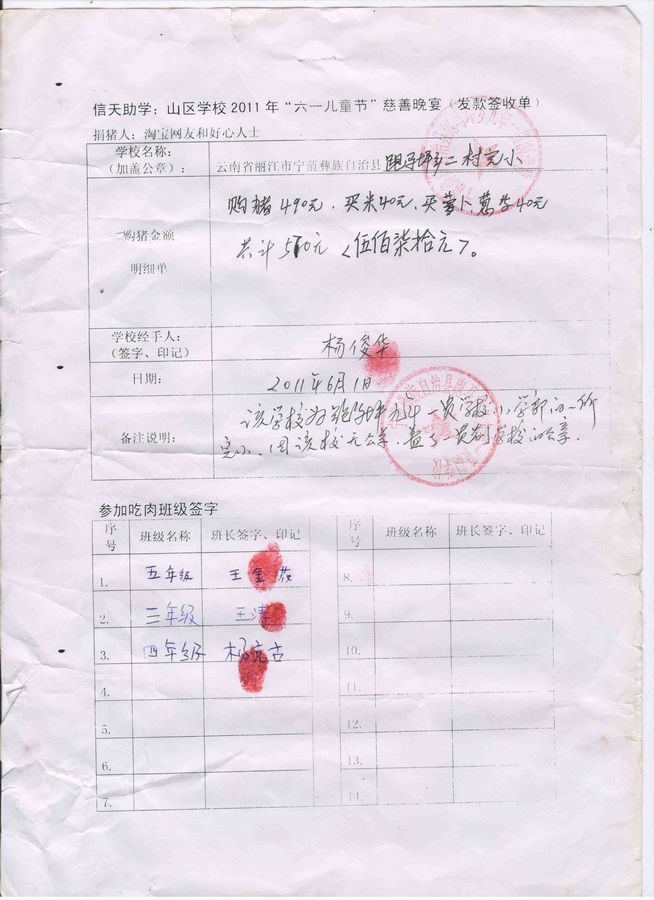 信天助学：山区学校2011年“六一儿童节”慈善晚宴（发款签收单）
捐猪人：淘宝网友和好心人士
学校名称：
（加盖公章）：
云南省丽江市宁蒗彝族自治县跑马坪乡二村完小
购猪金额
明细单
购猪490元，买米40元，买萝卜、葱等40元
共计570元〈伍佰柒拾元〉。
学校经手人：
（签字、印记）
杨俊华
日期：
2011年6月1日
备注说明：
该学校为跑马坪九年一贯学校小学部的一所
完小、因该校无公章，盖了一贯制学校的公章．
参加吃肉班级签字
序号 班级名称 班长签字、印记 序号 班级名称 班长签字、印记
1. 五年级 王金 8.
2. 三年级 王涛 9.
3. 四年级 杨 古 10.
4. 11.
5. 12.
6. 13.
7. 14.